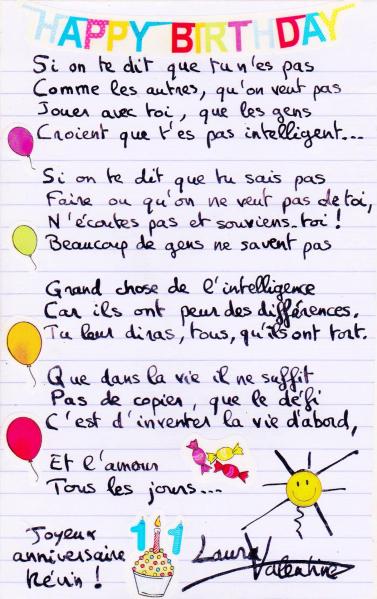 HAPPY BIRTHDAY
Si on te dit que tu n'es pas
Comme les autres, qu'on veut pas
Jouer avec toi, que les gens
Croient que t'es pas intelligent...
Si on te dit que tu sais pas
Faire ou qu'on ne veut pas de toi,
N'écoutes pas et souviens-toi !
Beaucoup de gens ne savent pas
Grand chose de l'intelligence
Car ils ont peur des différences.
Tu leur diras, tous, qu'ils ont tort.
Que dans la vie il ne suffit
Pas de copier, que le défi
C'est d'inventer la vie d'abord,
Et l'amour
Tous les jours...
Joyeux
anniversaire
Kévin !
11
Laura
Valentine